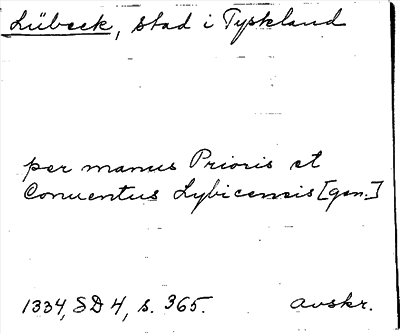 Lübeck, stad i Tyskland
per manus Prioris et
Conuentus Lybicensis [gen.]
1334, SD 4, s. 365. avskr.